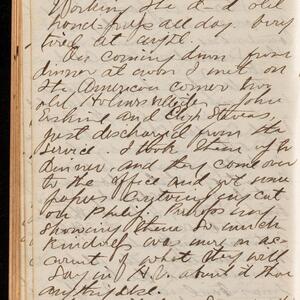 Working the d—d old
hand-press all day. Very
tired at night.
On coming down from
dinner at noon I met on
the American corner two
old Holmes Valley John
Erskine and Stevens,
just discharged from the
service. I took them up to
dinner, and they came over
to the office and got some
papers
on
showing them so much
kindness was more on ac-
count of what they will
say in H.V. about it than
anything else.